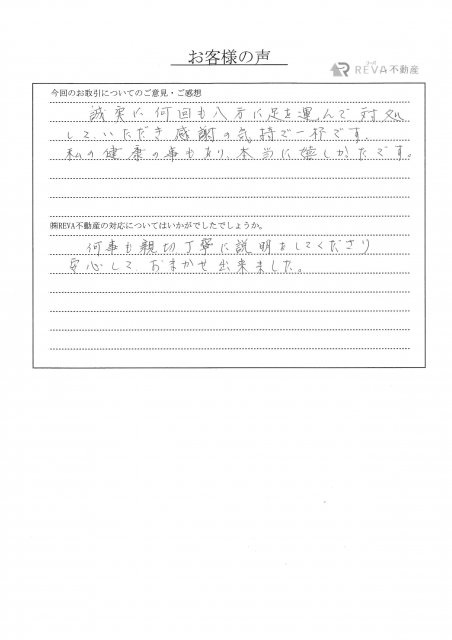 お客様の声
REVA不動産
今回のお取引についてのご意見・ご感想
誠実に何回も八方に足を運んで対処
していただき感謝の気持で一杯です。
私の健康の事もあり、本当に嬉しかったです。
㈱REVA不動産の対応についてはいかがでしたでしょうか。
何事も親切丁寧に説明をしてくださり
安心しておまかせ出来ました。